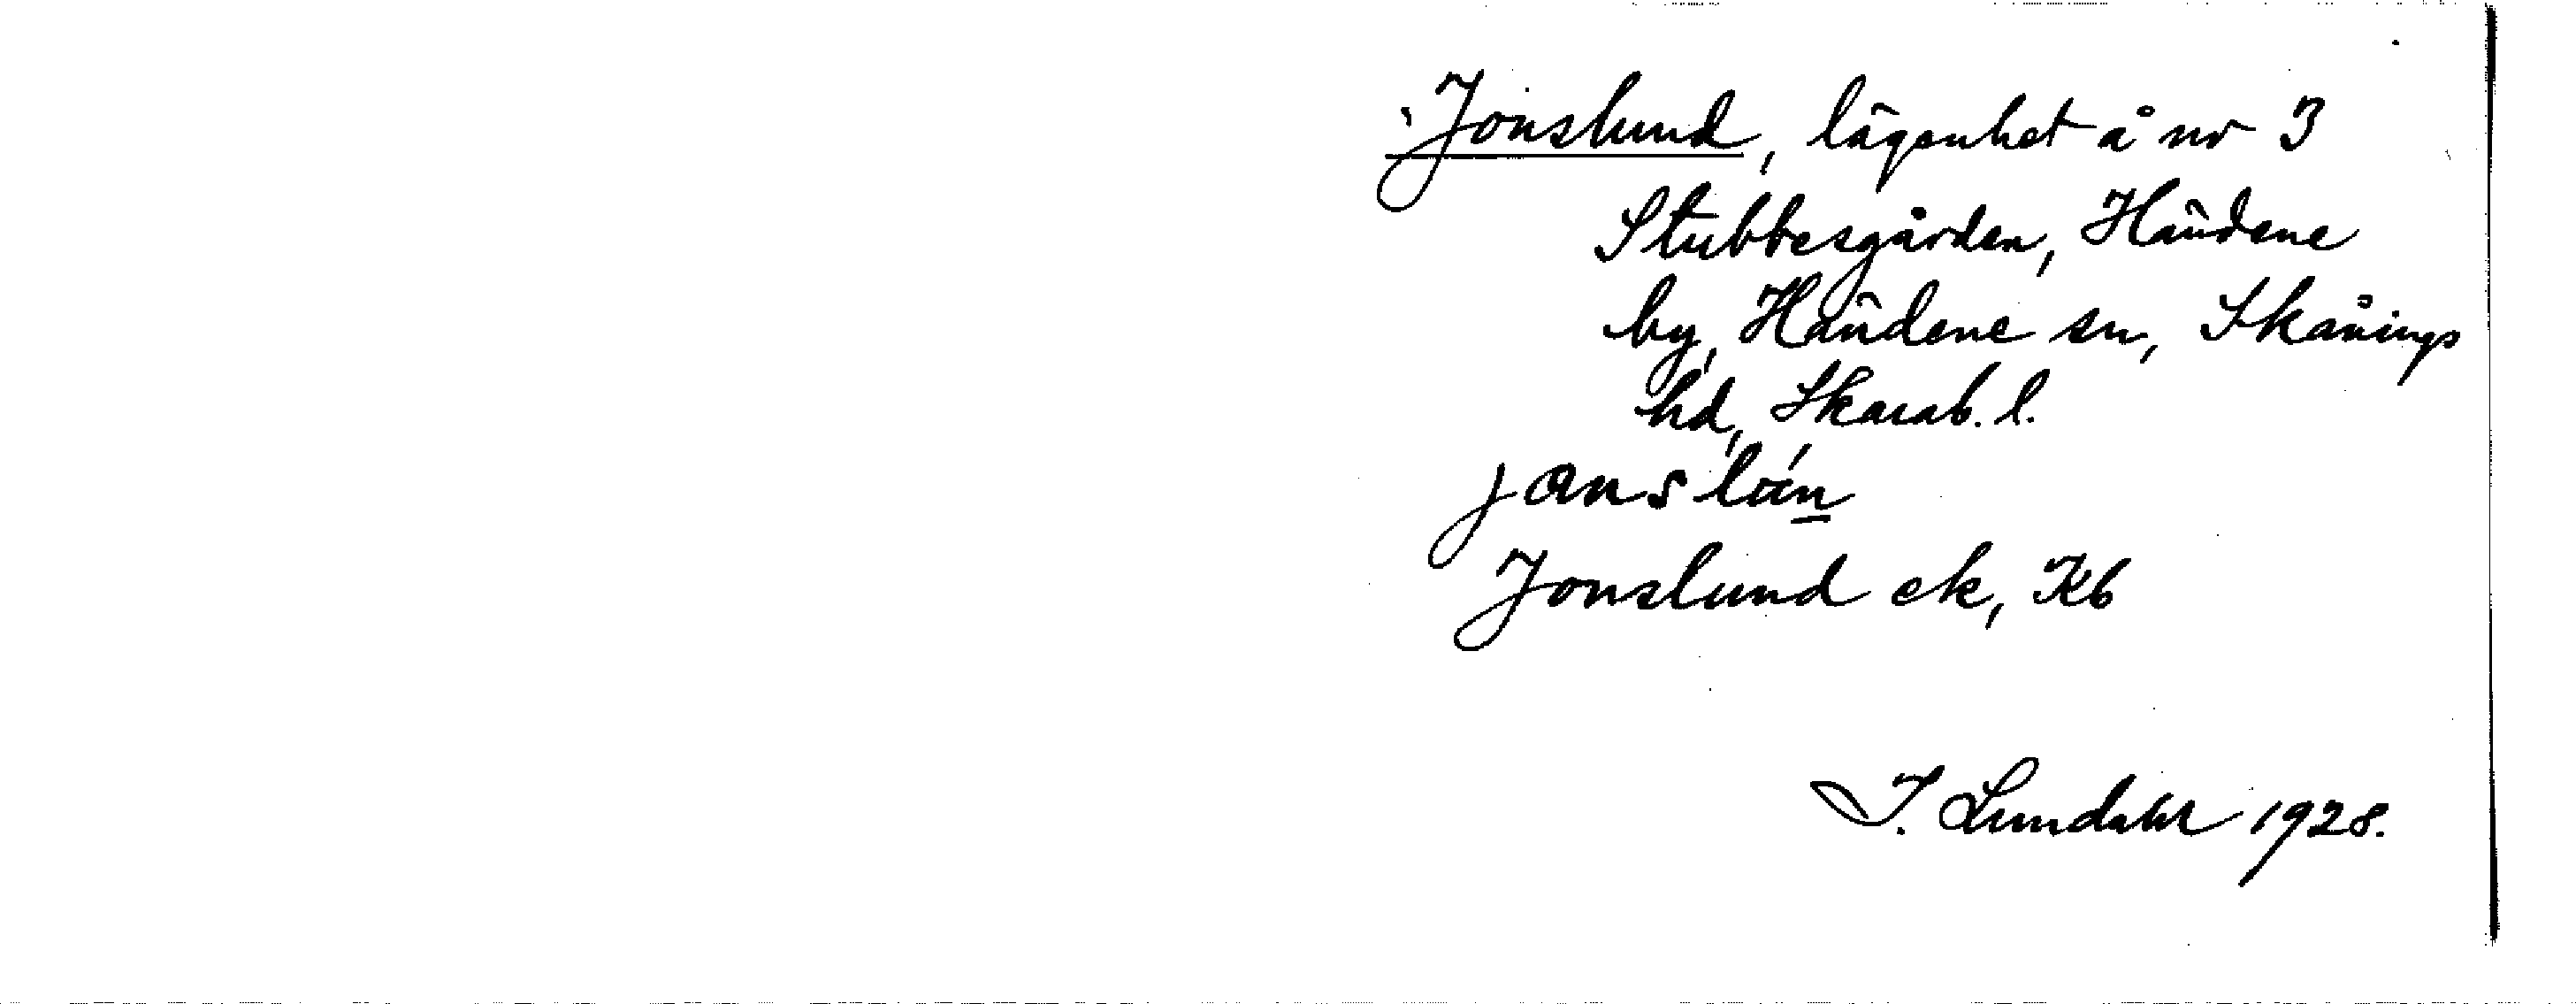 Jonslund, lägenhet å nr 3
Stubbesgården, Händene
by, Händene sn, Skånings
hd, Skarab. l.
Jonslund ek, Kb
I. Lundahl 1928.